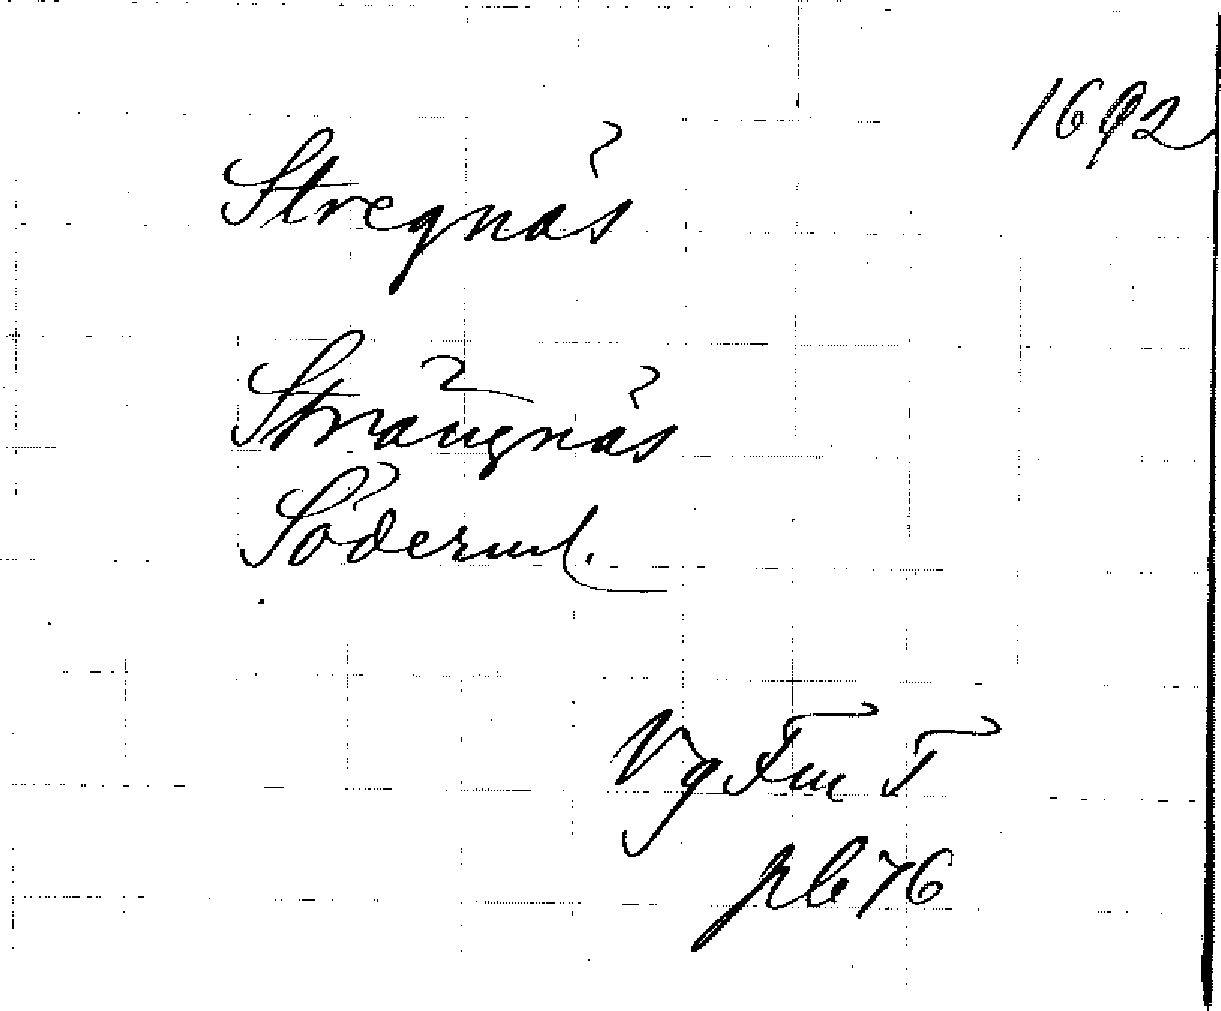 1692
Stregnäs
Strängnäs
Söderml.
Vg Fm T
p 676